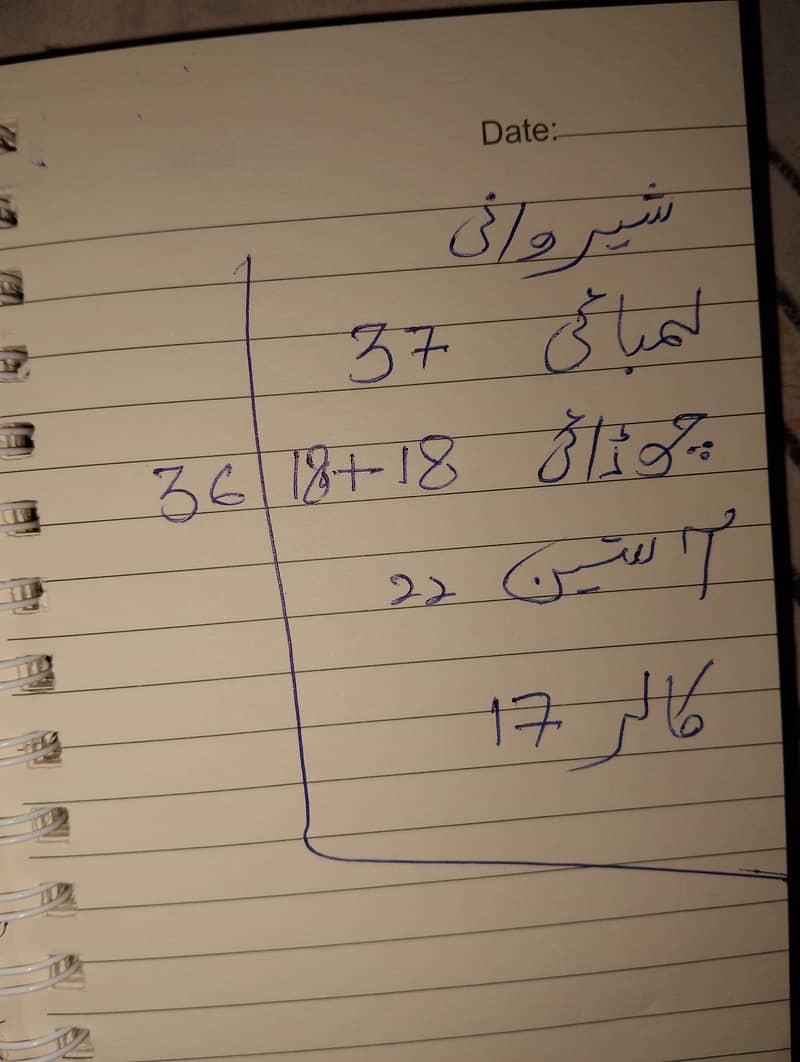 Date:
شیروانی
لمبائی 37
چوڈائی 18+18 36
آستین 22
کالر 17